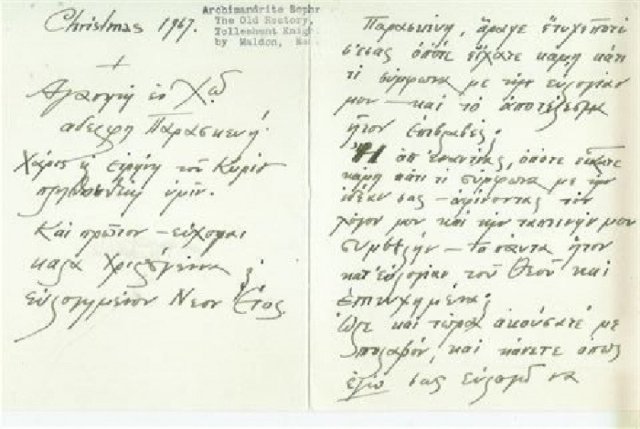 Christmas 1967.
Archimandrite Sophr
The Old Rectory,
Tolleshunt Knigh
by Maldon, Es
+
Ἀγαπητή ἐν Χῷ
ἀδελφή Παρασκευή.
Χάρις κ εἰρήνη τοῦ Κυρίου
πληθυνθείη ὑμῖν.
Καί πρῶτον – εὔχομαι
καλά Χριστούγεννα
εὐλογημένον Νέον Ἔτος.
Παρασκευή, ἄραγε ἔτυχε ποτέ
σ' ἐσάς ὁπότε εἴχατε κάμῃ κάτι
τι σύμφωνα με την εὐλογίαν
μου – καί τό ἀποτέλεσμα
ἦτον ἐπιβλαβές;
Ἤ ἀπ' ἐναντίας, ὁπότε εἴχατε
κάμῃ κάτι τι σύμφωνα με την
ἰδέαν σας – ἀφίνοντας τόν
λόγον μου καί την ταπεινήν μου
συμβουλήν – τό πάντα ἦτον
κατ' εὐλογίαν τοῦ Θεοῦ καί
ἐπιτυχημένα;
Ὥστε καί τώρα ἀκούσατέ με
καί κάνετε ὅπως
ἐγώ σας εὐλογῶ να